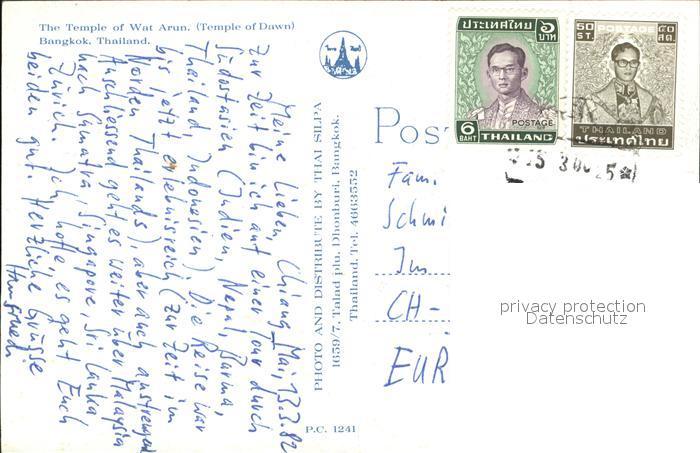 The Temple of Wat Arun. (Temple of Dawn)
Bangkok, Thailand.
Chiang Mai, 13.3.82
Meine Lieben,
Zur Zeit bin ich auf einer Tour durch
Südostasien (Indien, Nepal, Burma,
Thailand, Indonesien). Die Reise war
bis jetzt erlebnisreich (zur Zeit im
Norden Thailands), aber auch anstrengend
Anschliessend geht es weiter über Malaysia
nach Sumatra, Singapore, Sri Lanka
Zürich. Ich hoffe es geht Euch
beiden gut. Herzliche Grüsse
PHOTO AND DISTRIBUTE BY THAI SILPA
1659/7, Talad plu, Dhonburi, Bangkok.
Thailand. Tel. 4663552
P.C. 1241
POS
ประเทศไทย ๖ บาท
6 BAHT
POSTAGE
THAILAND
50 ST.
POSTAGE
๕๐ สต.
THAILAND
ประเทศไทย
Fam.
Schmi
Im
CH-
EUR
privacy protection
Datenschutz